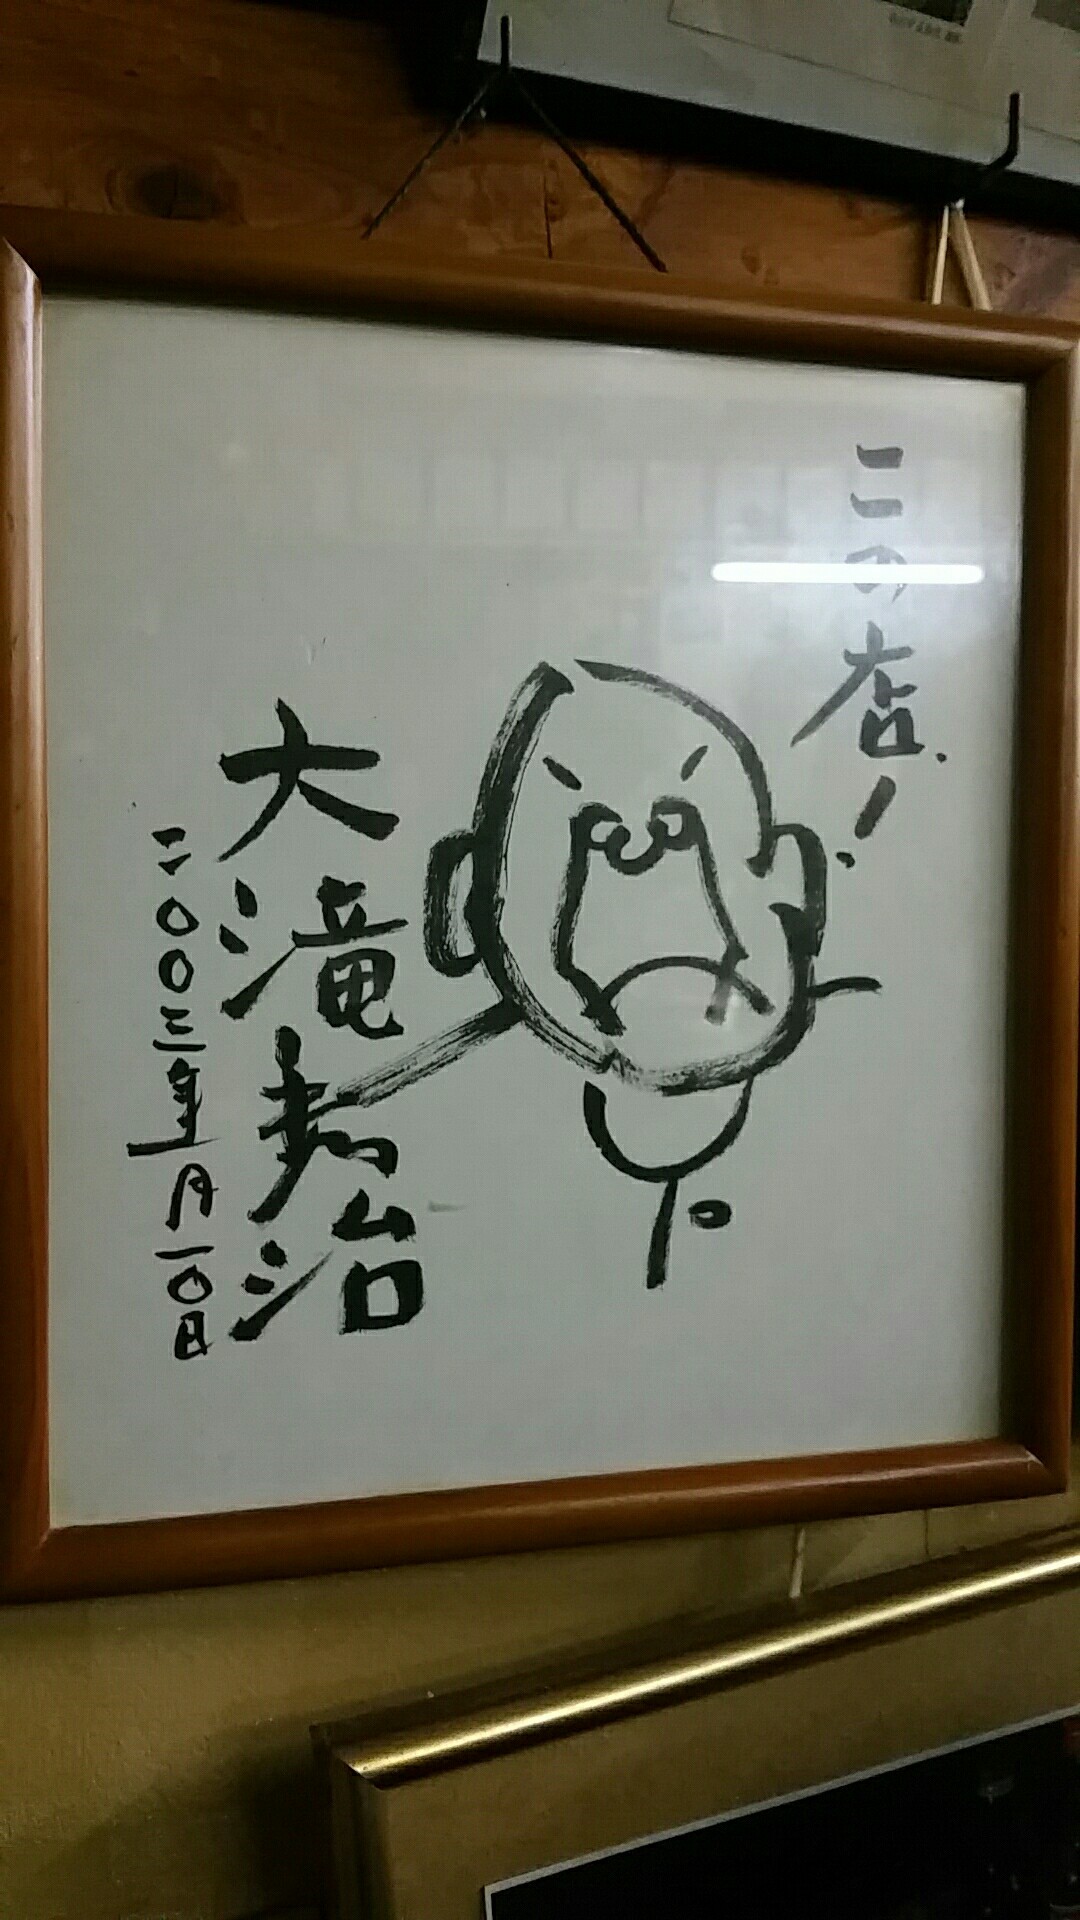 この店!
大滝秀治
二〇〇三年 月一〇日